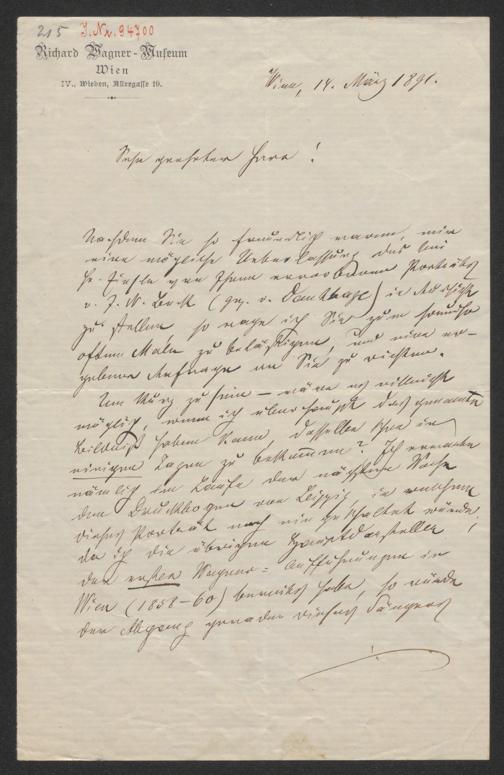 215 I.Nr. 94700
Richard Wagner-Museum
Wien
IV., Wieden, Alleegasse 19.
Wien, 14. März 1891.
Sehr geehrter Herr!
Nachdem Sie so freundlich waren, mir
eine mögliche Ueberlassung des bei
H. von Ihnen erworbenen Porträts
v. J. N. Beck (gez. v. Dauthage) in Aussicht
zu stellen so wage ich Sie zum
ten Male zu belästigen, und eine er-
gebene Anfrage an Sie zu richten.
Um kurz zu sein – wäre es vielleicht
möglich, wenn ich überhaupt das genannte
Bildniß haben kann, dasselbe schon in
einigen Tagen zu bekommen? Ich erwarte
nämlich im Laufe der nächsten Woche
den Druckbogen von Leipzig, in welchem
dieses Porträt noch eingeschaltet würde;
da ich die übrigen Hauptdarsteller
der ersten Wagner-Aufführungen in
Wien (1858-60) bereits habe, so würde
der Abgang gerade dieses Sängers